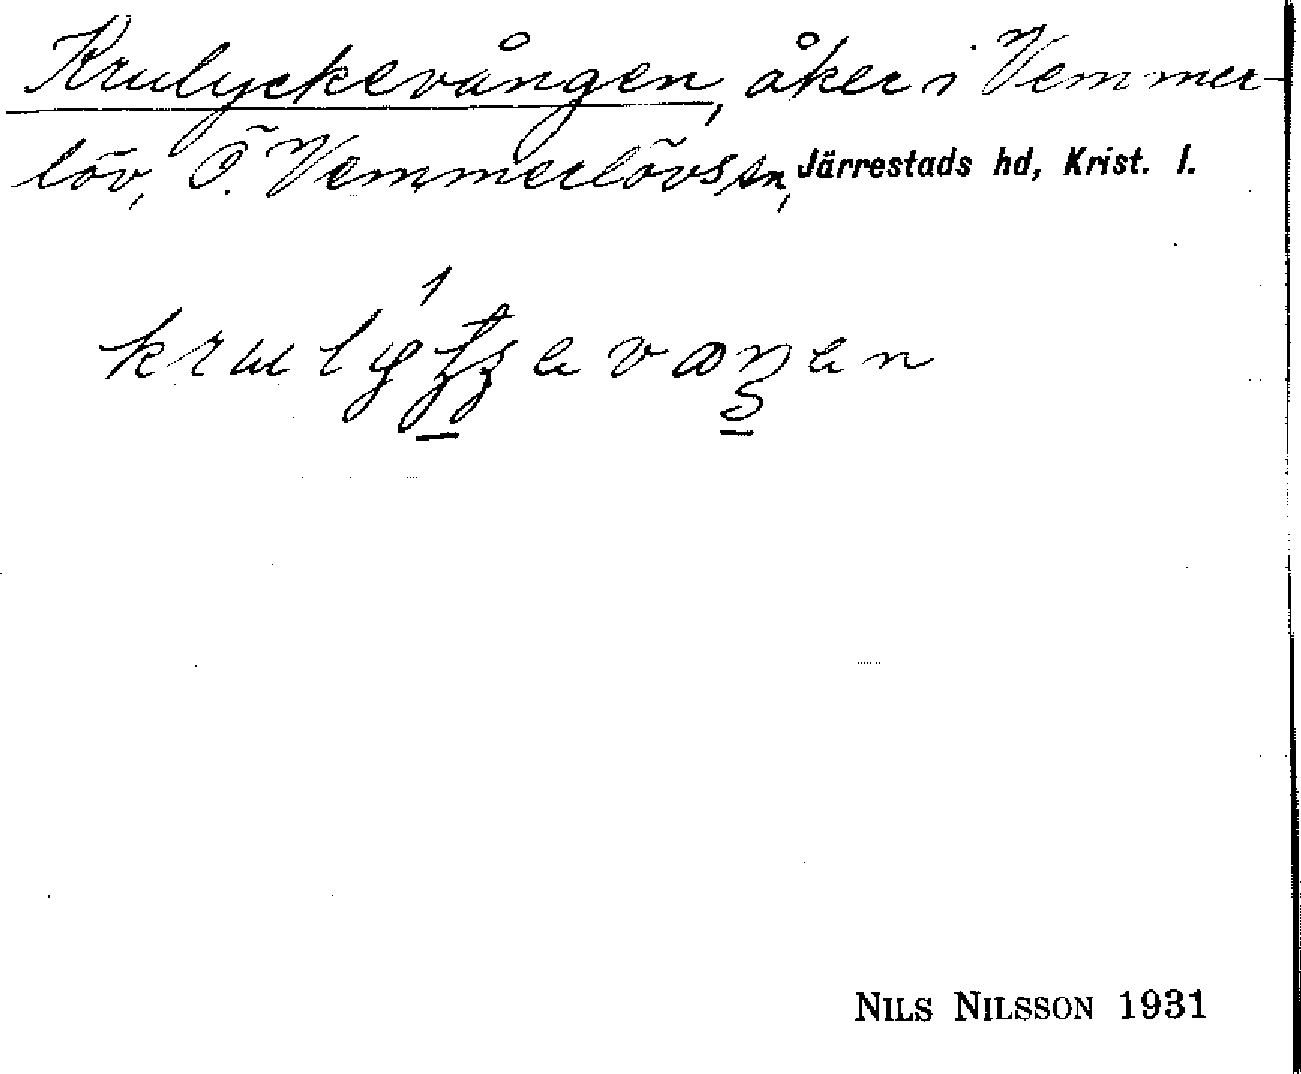 Krulyckevången, åker i Vemmer-
löv, Ö. Vemmerlövs sn, Järrestads hd, Krist. l.
NILS NILSSON 1931